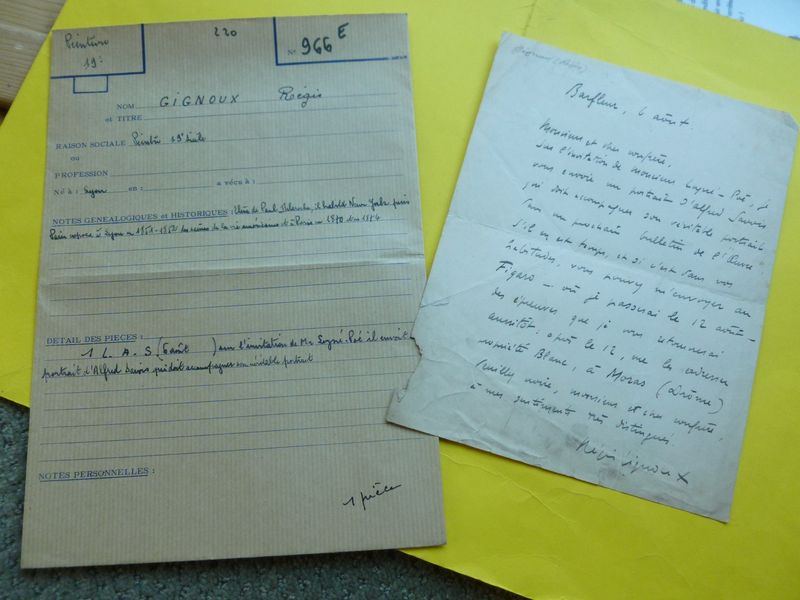 Peinture
19e
220
N° 966 E
NOM GIGNOUX Régis
et TITRE
RAISON SOCIALE Peintre 19e siècle
ou
PROFESSION
Né à : Lyon en : a vécu à :
NOTES GENEALOGIQUES et HISTORIQUES : élève de Paul Delaroche, il habita New York puis
Paris exposa à Lyon en 1851-1852 des scènes de la vie américaine et à Paris en 1870 et 1874
DETAIL DES PIECES :
1 L. A. S. (6 août ) sur l'invitation de Mr Lugné-Poé il envoit
portrait d'Alfred qui doit accompagner son véritable portrait
NOTES PERSONNELLES :
1 pièce
Barfleur, 6 août.
Monsieur et cher confrère,
Sur l'invitation de monsieur Lugné-Poé, je
vous envoie un portrait d'Alfred
qui doit accompagner son véritable portrait
dans un prochain bulletin de l'Œuvre.
S'il en est temps, et si c'est dans vos
habitudes, vous pouvez m'envoyer au
Figaro – où je passerai le 12 août –
des épreuves que je vous retournerai
aussitôt. après le 12, me les adresser
propriété Blanc, à Moras (Drôme)
Veuillez croire, monsieur et cher confrère,
à mes sentiments très distingués.
Régis Gignoux